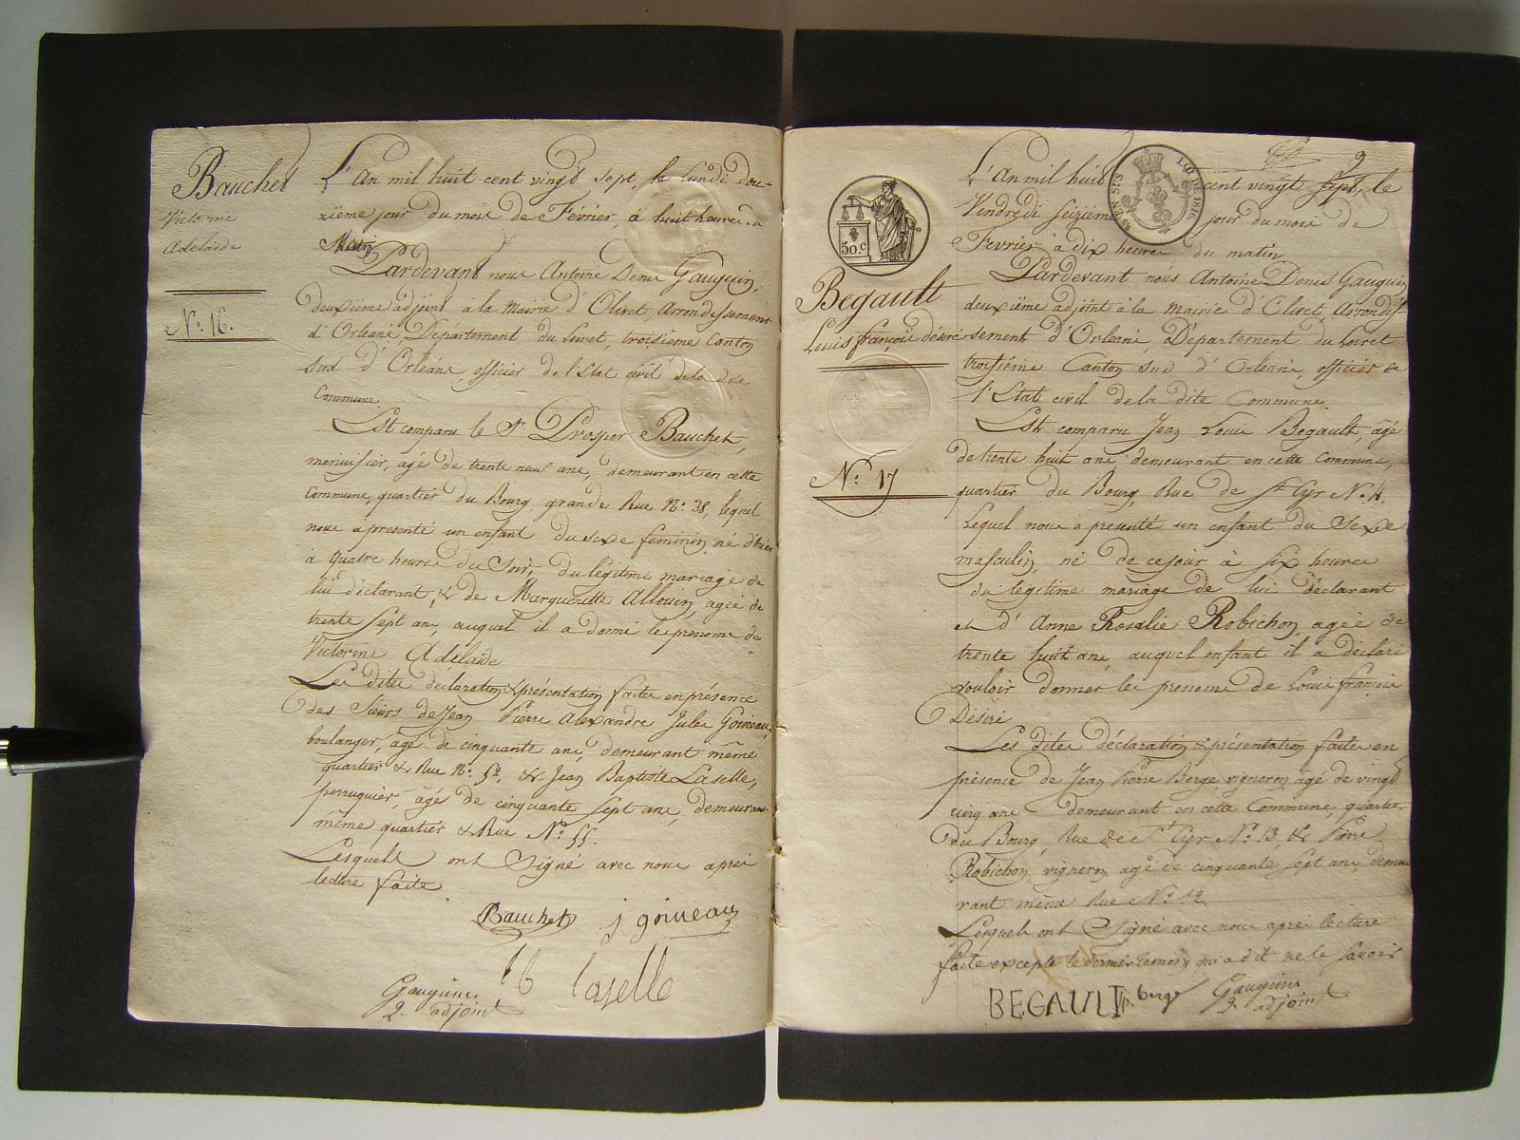 Bauchet
Victorine
Adelaide
N.° 16.
L'An mil huit cent vingt sept, le lundi dou-
zième jour du mois de Février, à huit heures du
Matin
Pardevant nous Antoine Denis Gauguin,
deuxième adjoint à la Mairie d'Olivet, Arrondissement
d'Orléans, Département du Loiret, troisième Canton
Sud d'Orléans, officier de l'Etat civil de la dite
Commune.
Est comparu le Sr. Prosper Bauchet,
menuisier, agé de trente neuf ans, demeurant en cette
Commune, quartier du Bourg, grande Rue N.° 38, lequel
nous a presenté un enfant du sexe feminin né d'hier
à quatre heures du Soir, du légitime mariage de
lui déclarant, & de Margueritte Allouin, agée de
trente Sept ans, auquel il a donné les prenoms de
Victorine Adélaide
Les dites déclaration & présentation faites en présence
des Sieurs de Jean Pierre Alexandre Jules Goineau,
boulanger, agé de cinquante ans, demeurant même
quartier & Rue N.° 52, & Jean Baptiste Laselle,
perruquier, âgé de cinquante Sept ans, demeurant
même quartier & Rue N.° 55.
Lesquels ont Signé avec nous après
lecture faite
Bauchet j goineau
J b laselle
Gauguin
2. adjoint
9
L'An mil huit cent vingt Sept, le
Vendredi Seizième jour du mois de
Février à dix heures du matin
50.c
Pardevant nous Antoine Denis Gauguin
Begault
Louis françois désiré
N.° 17
deuxième adjoint à la Mairie d'Olivet, Arrondis-
sement d'Orléans, Département du Loiret
troisième Canton Sud d'Orléans, officier de
l'Etat civil de la dite Commune.
Est comparu Jean Louis Begault, agé
de trente huit ans demeurant en cette Commune,
quartier du Bourg, Rue de St Cyr N.° 4.
Lequel nous a presenté un enfant du Sexe
masculin né de ce jour à six heures
du légitime mariage de lui déclarant
et d'Anne Rosalie Robichon, agée de
trente huit ans, auquel enfant il a déclaré
vouloir donner les prenoms de Louis françois
Désiré
Les dites déclaration & présentation faites en
présence de Jean Pierre Berge, vigneron, âgé de vingt
cinq ans demeurant en cette Commune, quartier
du Bourg, Rue de St Cyr N.° 13, & Pierre
Robichon, vigneron agé de cinquante sept ans, demeu
rant même Rue N.° 12
Lesquels ont Signé avec nous après lecture
faite excepté le dernier temoin qui a dit ne le savoir
BEGAULT berge Gauguin
2. adjoint